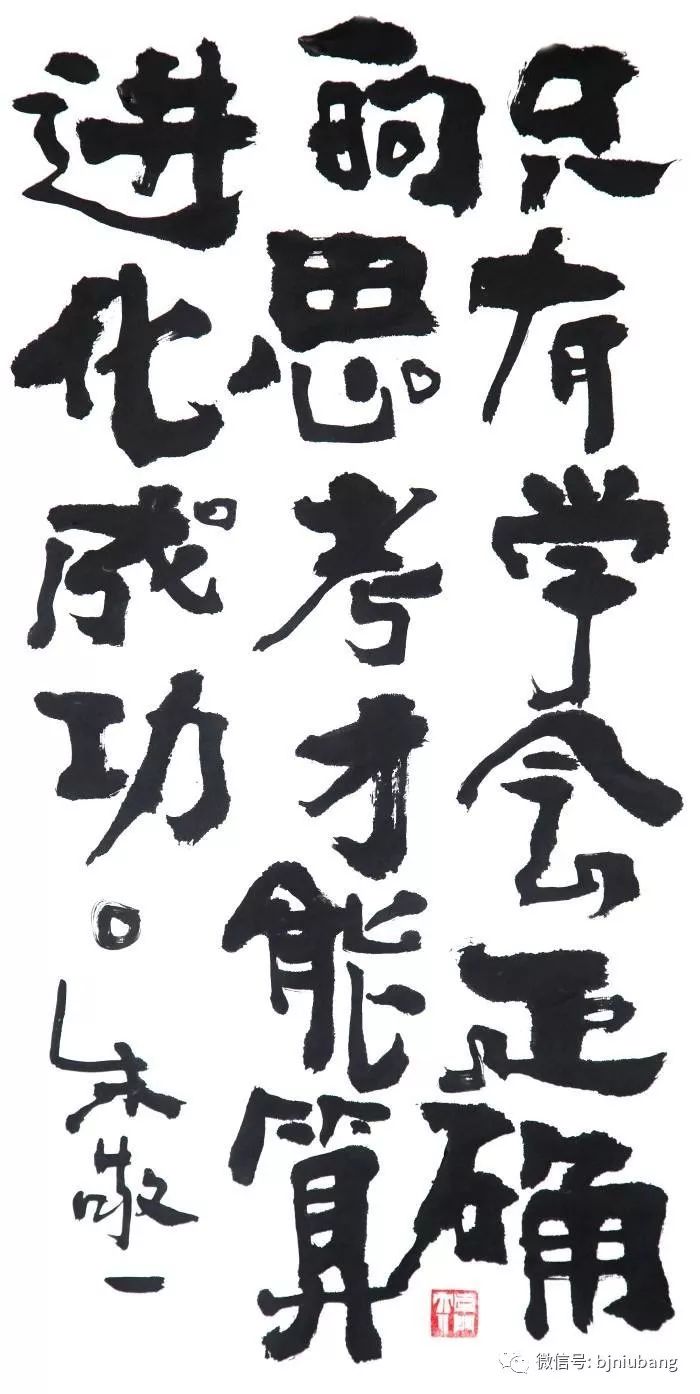 只有学会正确
的思考才能算
进化成功。
朱敬一
微信号: bjniubang